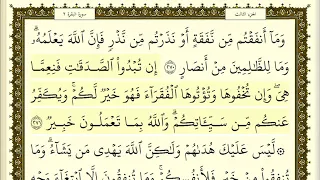 الجزء الثالث سورة البقرة
وَمَآ أَنفَقْتُم مِّن نَّفَقَةٍ أَوْ نَذَرْتُم مِّن نَّذْرٍ فَإِنَّ ٱللَّهَ يَعْلَمُهُۥ ۗ
وَمَا لِلظَّٰلِمِينَ مِنْ أَنصَارٍ ٢٧٠ إِن تُبْدُوا۟ ٱلصَّدَقَٰتِ فَنِعِمَّا
هِىَ ۖ وَإِن تُخْفُوهَا وَتُؤْتُوهَا ٱلْفُقَرَآءَ فَهُوَ خَيْرٌ لَّكُمْ ۚ وَيُكَفِّرُ
عَنكُم مِّن سَيِّـَٔاتِكُمْ ۗ وَٱللَّهُ بِمَا تَعْمَلُونَ خَبِيرٌ ٢٧١
۞ لَّيْسَ عَلَيْكَ هُدَىٰهُمْ وَلَٰكِنَّ ٱللَّهَ يَهْدِى مَن يَشَآءُ ۗ وَمَا
تُنفِقُوا۟ مِنْ خَيْرٍ فَلِأَنفُسِكُمْ ۚ وَمَا تُنفِقُونَ إِلَّا ٱبْتِغَآءَ وَجْهِ